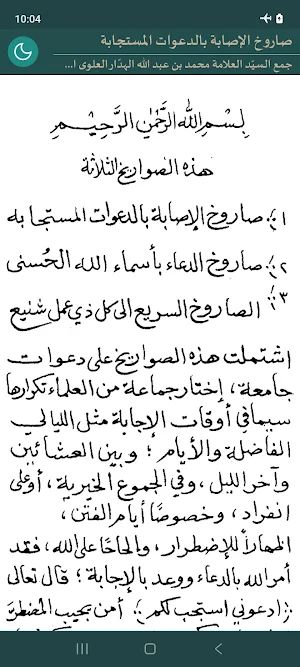 10:04
صاروخ الإصابة بالدعوات المستجابة
جمع السيّد العلامة محمد بن عبد الله الهدّار العلوي ا...
بِسْمِ اللهِ الرَّحْمٰنِ الرَّحِيْمِ
هذه الصواريخ الثلاثة
١؛ صاروخ الإصابة بالدعوات المستجابه
٢؛ صاروخ الدعاء بأسماء الله الحُسنى
٣؛ الصاروخ السريع الى كل ذي عمل شنيع
اشتملت هذه الصواريخ على دعوات
جامعة، إختار جماعة من العلماء تكرارها
سيما في أوقات الإجابة مثل الليالي
الفاضلة والأيام؛ وبين العشائين
وآخر الليل، وفي الجموع الخيرية، أو على
انفراد، وخصوصًا أيام الفتن،
إظهارًا للإضطرار، وإلحاحًا على الله، فقد
أمر الله بالدعاء ووعد بالإجابة؛ قال تعالى
؛(ادعوني استجب لكم)؛ أمن يجيب المضطرَّ